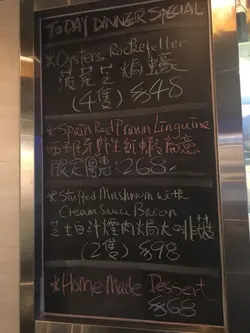 TODAY DINNER SPECIAL
*Oysters Rockefeller
菠菜芝士焗蠔
(4隻) $48
*Spain Red Prawn Linguine
西班牙野生紅蝦扁意
限定優惠:268.-
*Stuffed Mushroom with
Cream Sauce Bacon
芝士白汁煙肉焗大啡菇
(2隻) $98
*Home Made Dessert
$68